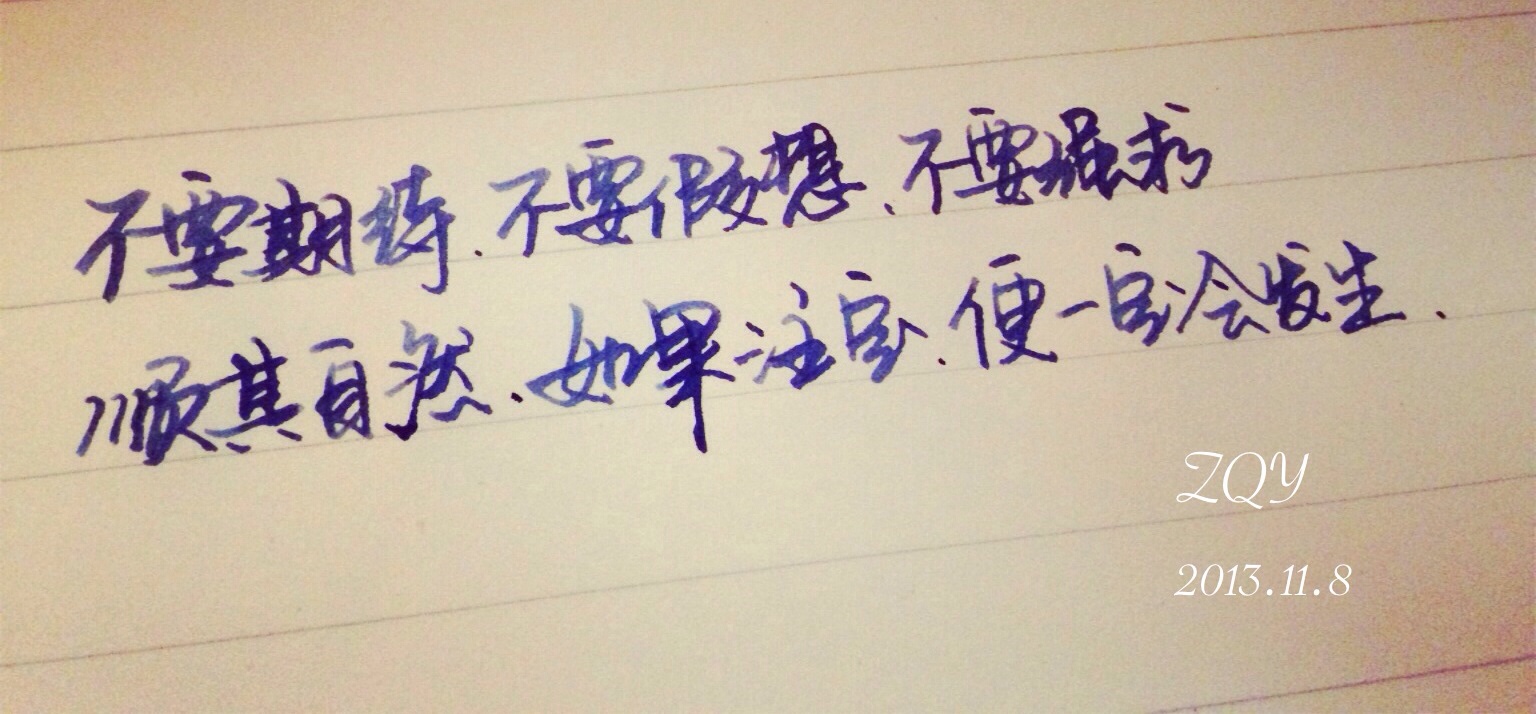 不要期待、不要假想、不要强求
顺其自然、如果注定、便一定会发生.
ZQY
2013.11.8